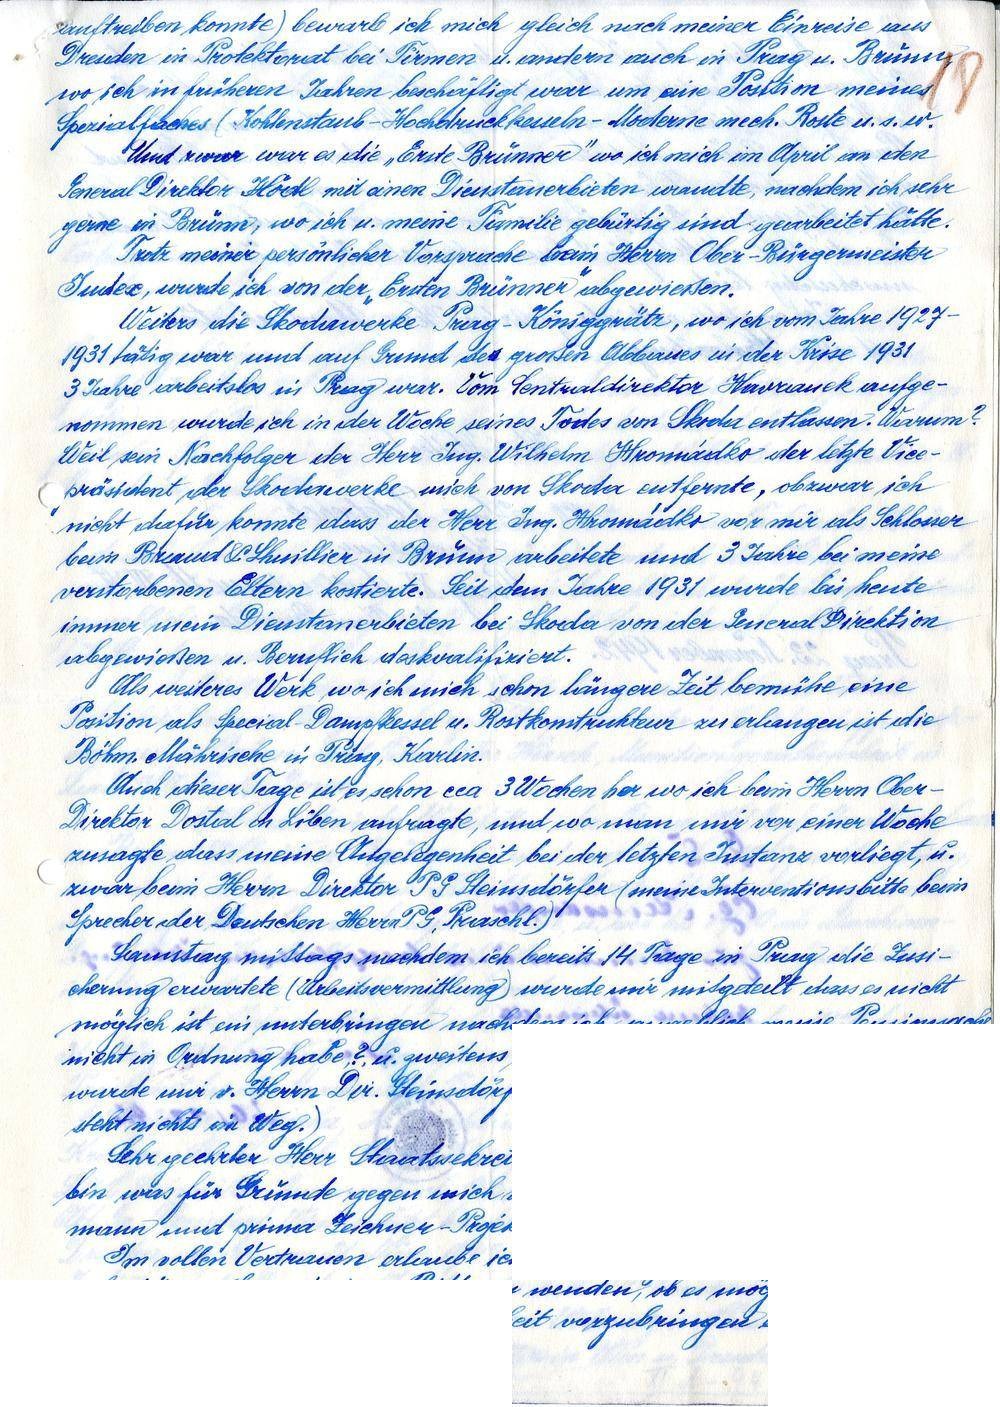 auftreiben konnte) bewarb ich mich gleich nach meiner Einreise aus
Dresden in Protektorat bei Firmen u. andern auch in Prag u. Brünn,
18
wo ich in früheren Jahren beschäftigt war um eine Position meines
Spezialfaches (Kohlenstaub-Hochdruckkesseln-Moderne mech. Roste u. s. w.
Und zwar war es die „Erste Brünner" wo ich mich im April an den
General Direktor Hödl mit einen Dienstanerbieten wandte, nachdem ich sehr
gerne in Brünn, wo ich u. meine Familie gebürtig sind gearbeitet hätte.
Trotz meiner persönlicher Vorsprache beim Herrn Ober-Bürgermeister
Judex, wurde ich von der „Ersten Brünner" abgewießen.
Weiters die Skodawerke Prag-Königgrätz, wo ich vom Jahre 1927-
1931 tätig war und auf Grund des großen Abbaues in der Krise 1931
3 Jahre arbeitslos in Prag war. Vom Zentraldirektor Havranek aufge-
nommen wurde ich in der Woche seines Todes von Skoda entlassen. Warum?
Weil sein Nachfolger der Herr Ing. Wilhelm Hromádko der letzte Vice-
präsident der Skodawerke mich von Skoda entfernte, obzwar ich
nicht dafür konnte dass der Herr Ing. Hromádko vor mir als Schlosser
beim Brand & Lhuillier in Brünn arbeitete und 3 Jahre bei meine
verstorbenen Eltern kostierte. Seit dem Jahre 1931 wurde bis heute
immer mein Dienstanerbieten bei Skoda von der General Direktion
abgewießen u. Beruflich deskvalifiziert.
Als weiteres Werk wo ich mich schon längere Zeit bemühe eine
Position als Special-Dampfkessel u. Rostkonstrukteur zu erlangen ist die
Böhm. Mährische in Prag, Karlin.
Auch dieser Tage ist es schon cca 3 Wochen her wo ich beim Herrn Ober-
Direktor Dostal in Löben anfragte, und wo man mir vor einer Woche
zusagte dass meine Angelegenheit bei der letzten Instanz vorliegt, u.
zwar beim Herrn Direktor PG Steinsdörfer (meine Interventionsbitte beim
Sprecher der Deutschen Herrn PG, Praschl.)
Samstag mittags nachdem ich bereits 14 Tage in Prag die Zusi-
cherung erwartete (Arbeitsvermittlung) wurde mir mitgeteilt dass es nicht
möglich ist ein unterbringen nachdem ich angeblich meine
nicht in Ordnung habe,? u. zweitens
wurde mir v. Herrn Dir. Steinsdörf
steht nichts im Weg.)
Sehr geehrter Herr Staatssekre
bin was für Gründe gegen mich
mann und prima Zeichner-Projek
Im vollen Vertrauen erlaube ic
wenden, ob es mög
eit vorzubringen